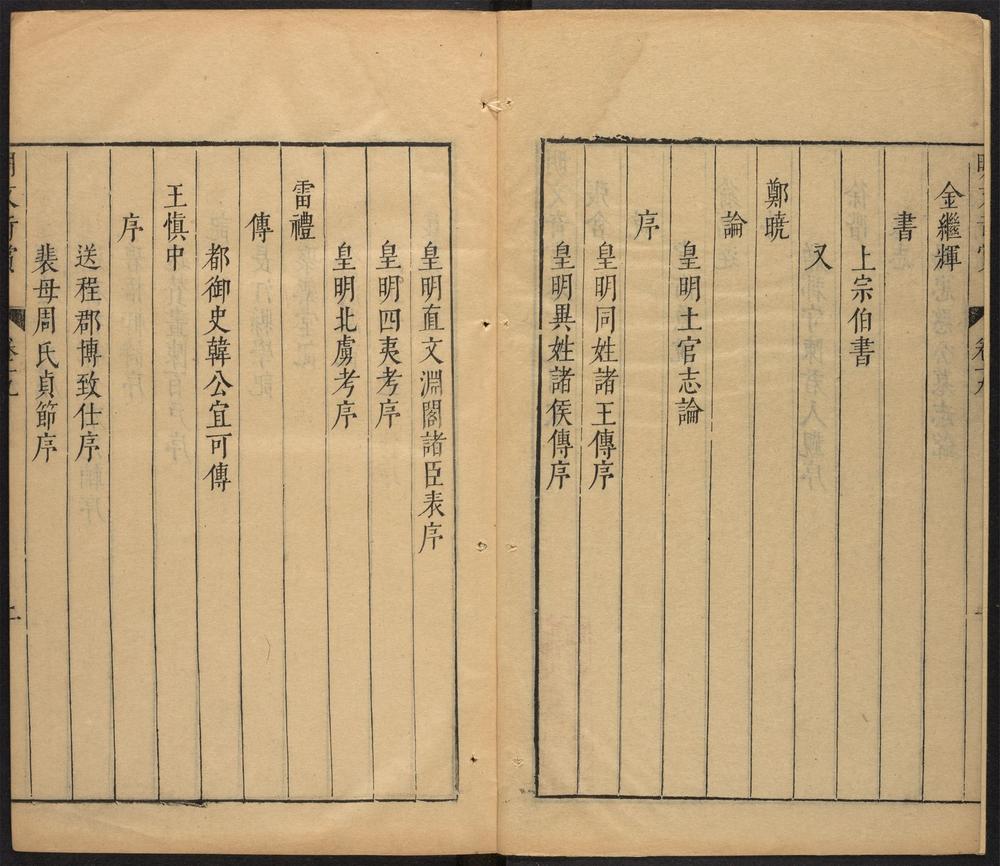 金繼輝
書
上宗伯書
又
鄭曉
論
皇明土官志論
序
皇明同姓諸王傳序
皇明異姓諸侯傳序
皇明直文淵閣諸臣表序
皇明四夷考序
皇明北虜考序
雷禮
傳
都御史韓公宜可傳
王慎中
序
送程郡博致仕序
裴母周氏貞節序